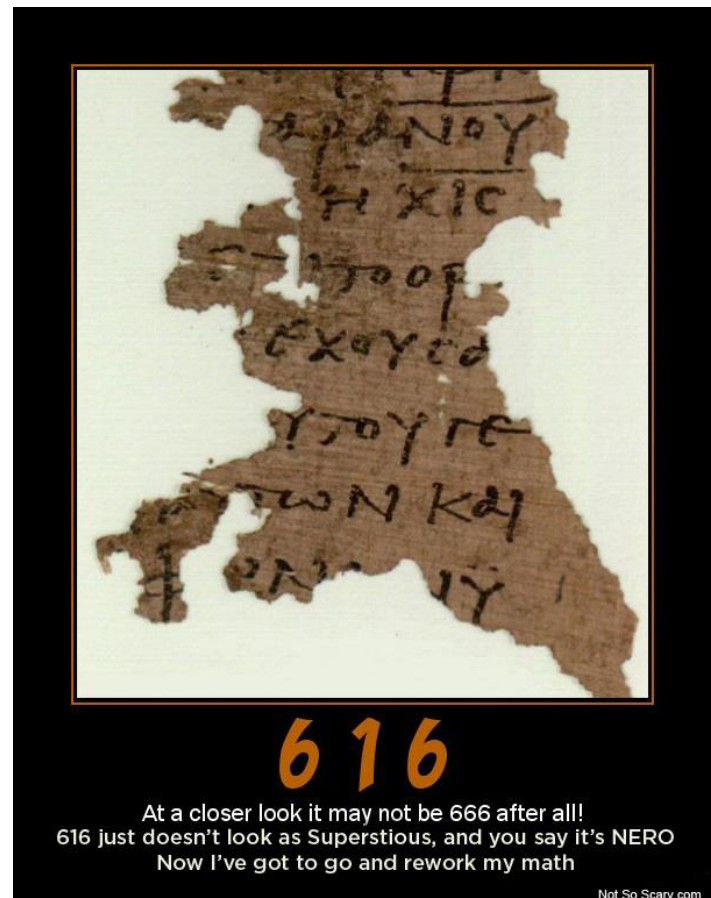 αρανου
η χιϲ
προϲ
εχουϲα
υπουγε
των και
616
At a closer look it may not be 666 after all!
616 just doesn't look as Superstious, and you say it's NERO
Now I've got to go and rework my math
Not So Scary.com